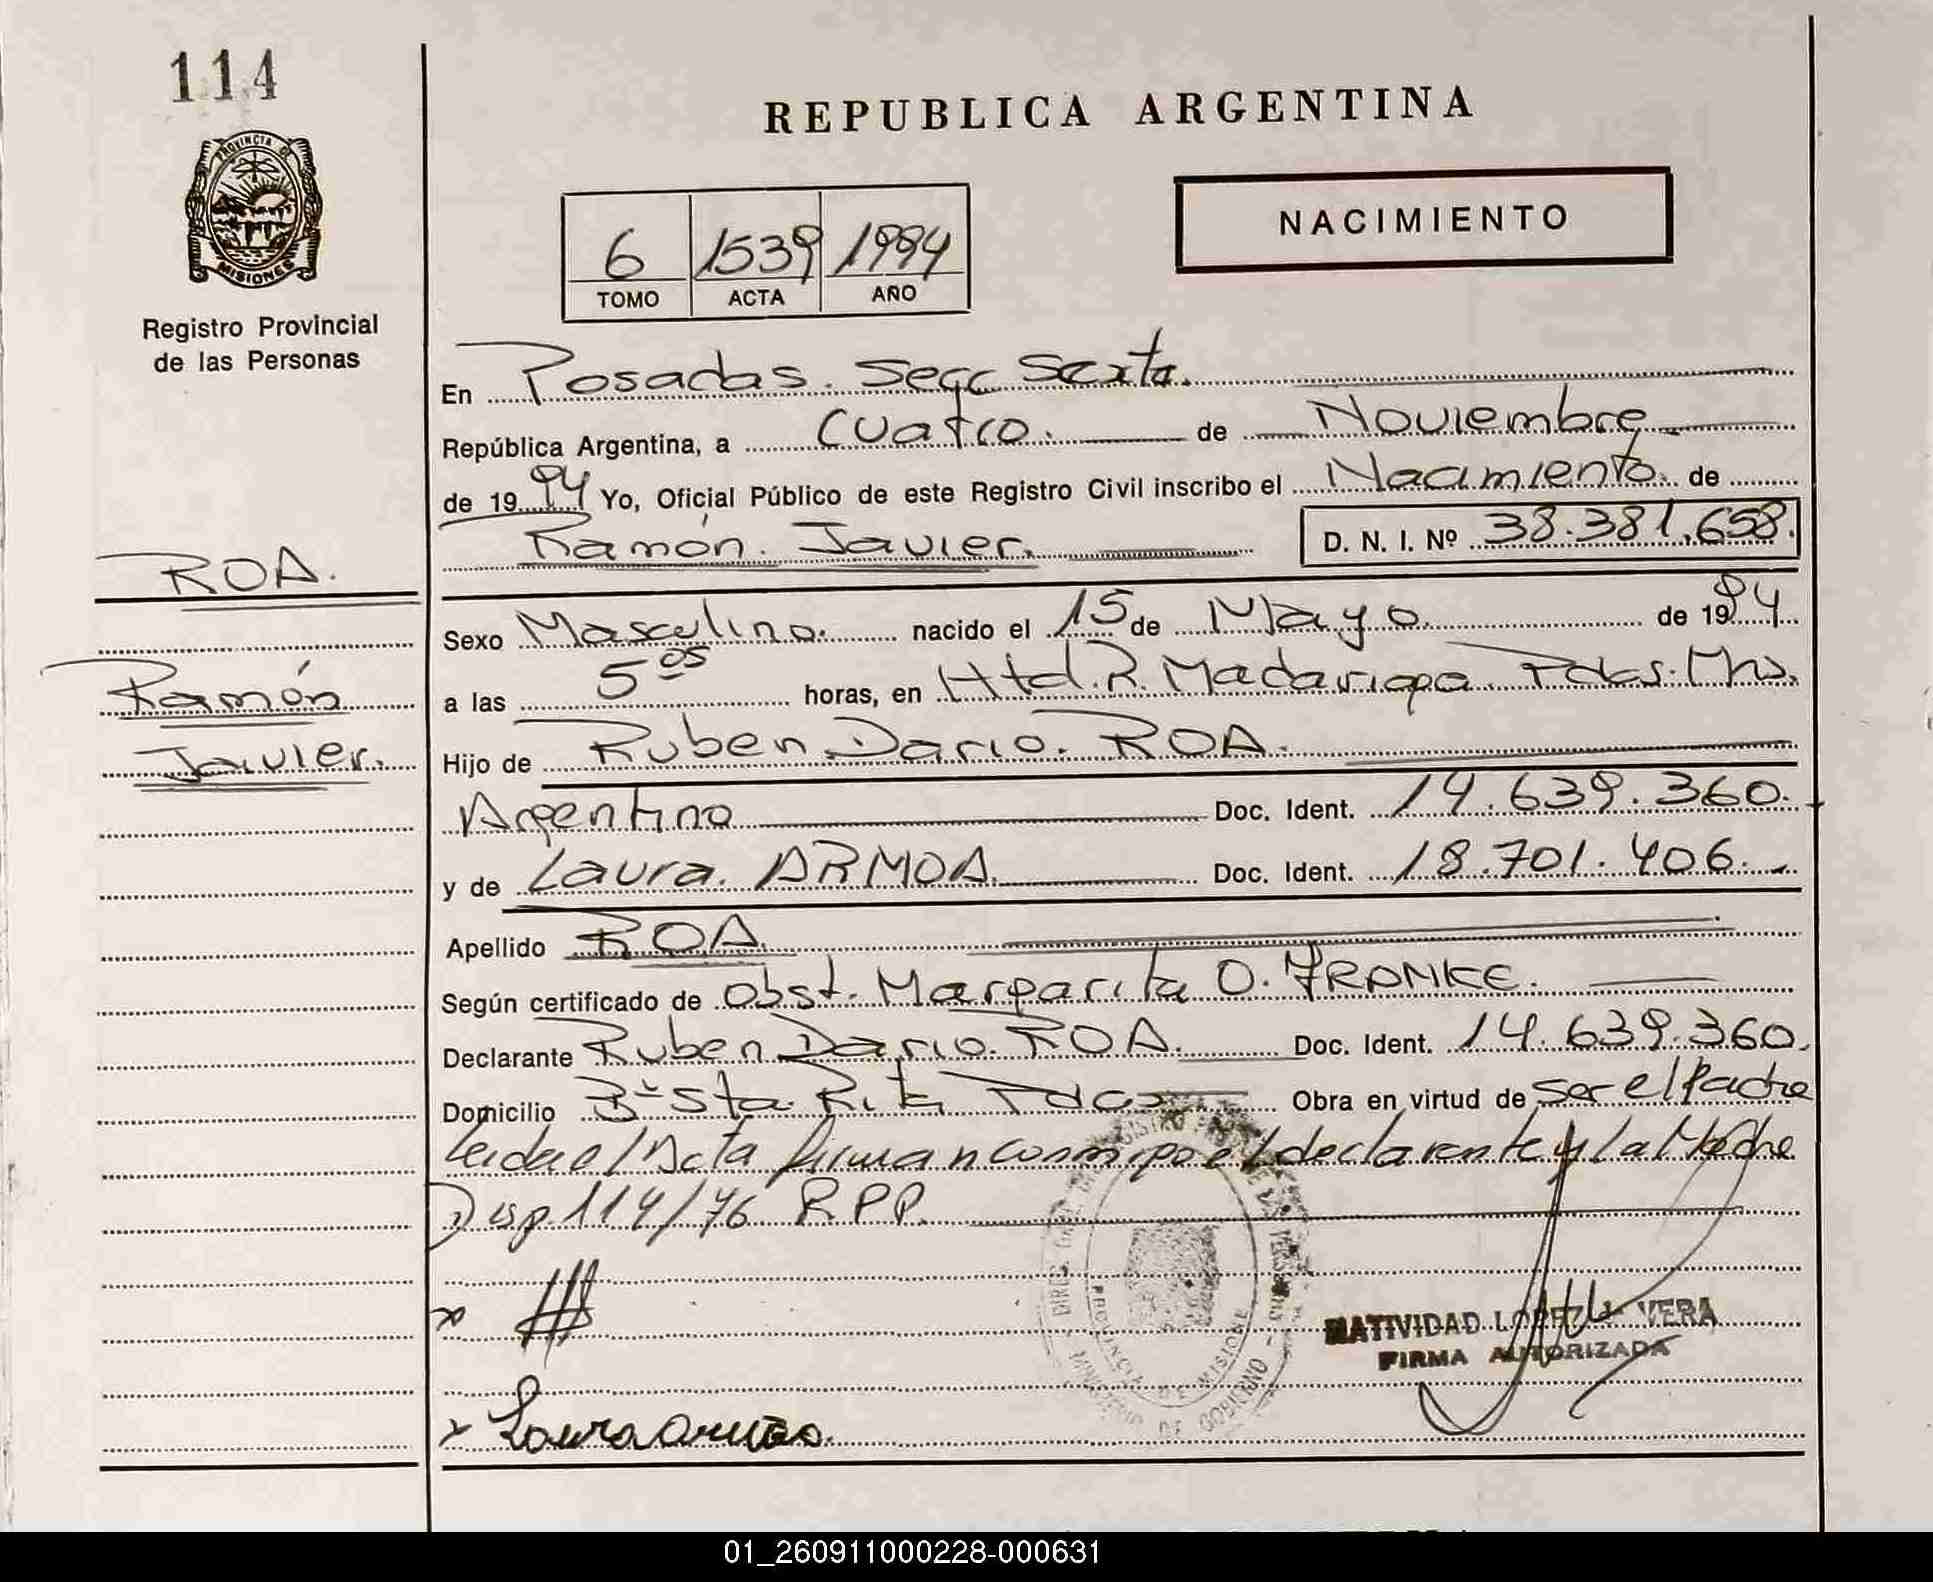 114
REPUBLICA ARGENTINA
PROVINCIA DE
MISIONES
NACIMIENTO
6 1539 1994
TOMO ACTA AÑO
Registro Provincial
de las Personas
En Posadas. Secc Sexta.
República Argentina, a Cuatro. de Noviembre
de 1994 Yo, Oficial Público de este Registro Civil inscribo el Nacimiento. de
Ramón. Javier. D. N. I. Nº 38.381.658.
ROA.
Sexo Masculino. nacido el 15 de Mayo de 1994
Ramón
a las 5 05 horas, en Htal. R. Madariaga. Pdas. Mns.
Javier.
Hijo de Ruben Dario. ROA.
Argentino Doc. Ident. 14.639.360.
y de Laura. ARMOA. Doc. Ident. 18.701.406.
Apellido ROA.
Según certificado de Obst. Margarita O. FRANKE.
Declarante Ruben Dario. ROA. Doc. Ident. 14.639.360.
Domicilio Bº Sta. Rita Pdas Obra en virtud de ser el Padre
Leida el Acta firman conmigo el declarante y la Madre
Disp. 114/76 R.P.P.
NATIVIDAD LOPEZ VERA
FIRMA AUTORIZADA
PROVINCIA DE MISIONES
MINISTERIO DE GOBIERNO
x Laura Armoa.
01_260911000228-000631